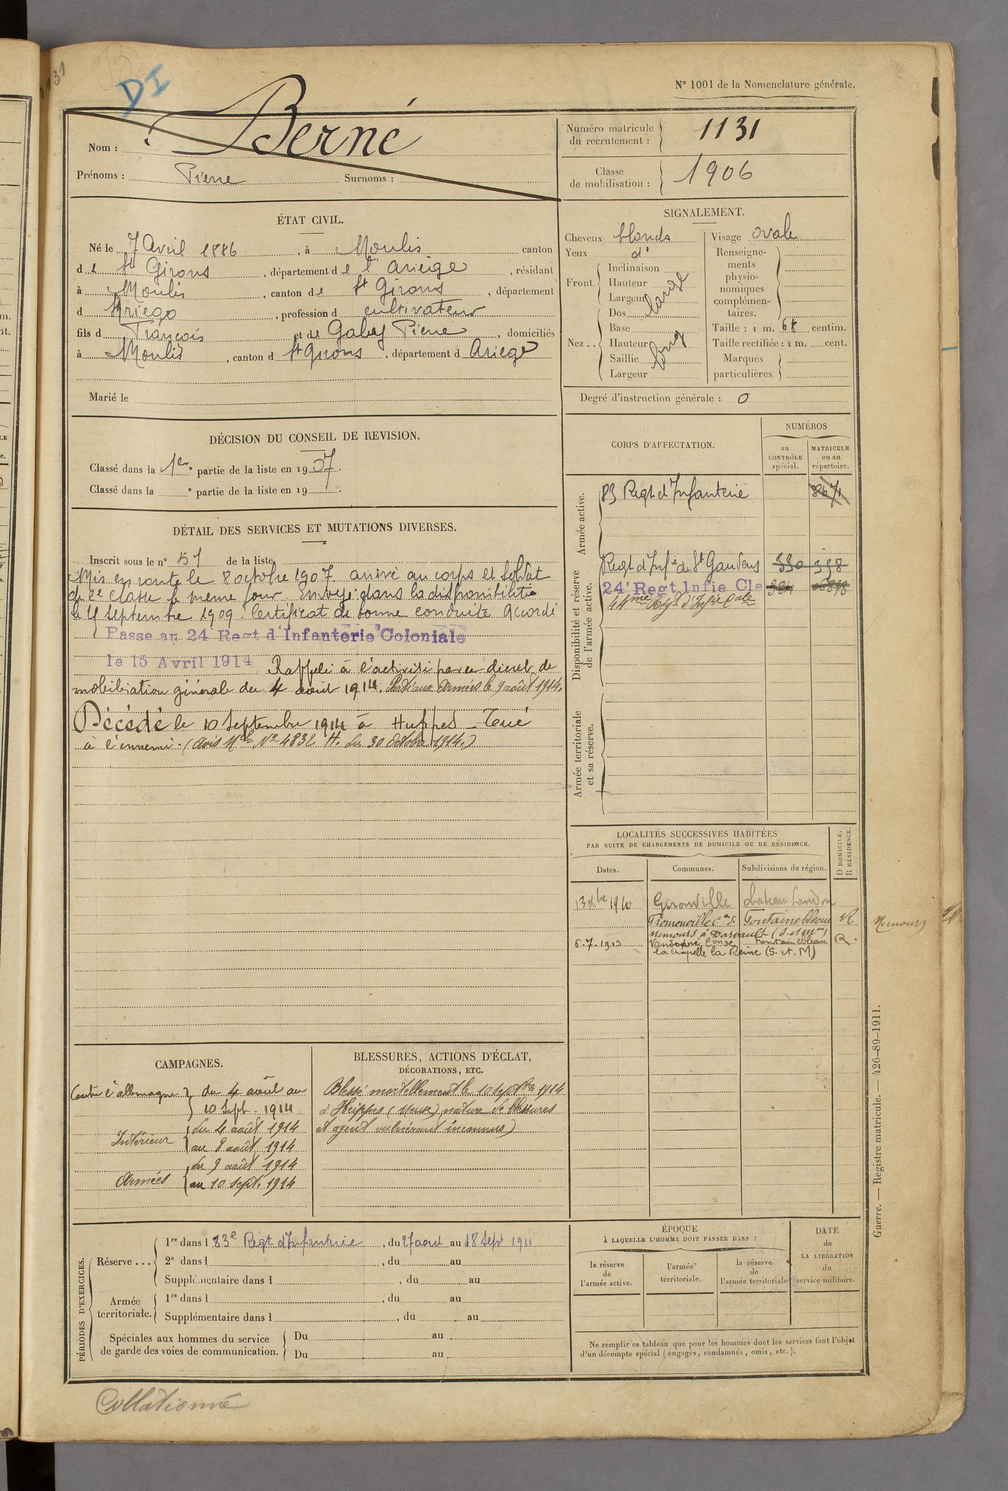 DI
N° 1001 de la Nomenclature générale.
Nom : Berné
Prénoms : Pierre Surnoms :
Numéro matricule du recrutement : 1131
Classe de mobilisation : 1906
ÉTAT CIVIL.
Né le 7 Avril 1886, à Moulis canton
de St Girons, département de l'Ariège, résidant
à Moulis, canton de St Girons, département
d Ariège, profession d cultivateur
fils d François et de Galey Pierre, domiciliés
à Moulis, canton d St Girons, département d Ariège
Marié le
SIGNALEMENT.
Cheveux blonds
Yeux d°
Front. Inclinaison
Hauteur
Largeur large
Nez .. Dos
Base
Hauteur long
Saillie
Largeur
Visage ovale
Renseignements physionomiques complémentaires.
Taille : 1 m. 68 centim.
Taille rectifiée : 1 m. cent.
Marques particulières.
Degré d'instruction générale : 0
DÉCISION DU CONSEIL DE REVISION.
Classé dans la 1re partie de la liste en 1907.
Classé dans la e partie de la liste en 19 .
DÉTAIL DES SERVICES ET MUTATIONS DIVERSES.
Inscrit sous le n° 51 de la liste
Mis en route le 8 octobre 1907 arrivé au corps et soldat
de 2e classe le même jour. Envoyé dans la disponibilité
le septembre 1909. Certificat de bonne conduite accordé
Passe au 24 Regt d'Infanterie Coloniale
le 15 Avril 1914 Rappelé à l'activité par décret de
mobilisation générale du 4 août 1914. Parti aux Armées le 9 août 1914.
Décédé le 10 Septembre 1914 à Huppes Tué
à l'ennemi - (Avis Mel N° 4832 H. du 30 Octobre 1914.)
CORPS D'AFFECTATION.
NUMÉROS
au CONTRÔLE spécial.
MATRICULE ou au répertoire.
Armée active.
83 Regt d'Infanterie
Disponibilité et réserve de l'armée active.
Regt d'Inf. de St Gaudens 330 338
24e Regt Infie Cle
44me Regt d'Infie Cale
Armée territoriale et sa réserve.
LOCALITÉS SUCCESSIVES HABITÉES
PAR SUITE DE CHANGEMENTS DE DOMICILE OU DE RÉSIDENCE.
D DOMICILE. R RÉSIDENCE.
Dates. Communes. Subdivisions de région.
1910 Gironville Chateau Landon
Fromonville Cne de Fontainebleau R
Nemours à Darvault (S. et Mne)
6.7.1913 Fontainebleau R.
la Chapelle la Reine (S. et. M)
Nemours
CAMPAGNES.
Contre l'allemagne du 4 août au
10 Sept. 1914
Intérieur du 4 août 1914
au 8 août 1914
Armées du 9 août 1914
au 10 sept. 1914
BLESSURES, ACTIONS D'ÉCLAT,
DÉCORATIONS, ETC.
Blessé mortellement le 10 septbre 1914
à Heippes (Meuse) nature de blessures
et agent vulnérant inconnus)
PÉRIODES D'EXERCICES.
Réserve ... 1re dans l 83e Regt d'Infanterie, du 27 aout au 18 Sept 1911
2e dans l , du au
Supplémentaire dans l , du au
Armée territoriale. 1re dans l , du au
Supplémentaire dans l , du au
Spéciales aux hommes du service de garde des voies de communication. Du au
Du au
ÉPOQUE
À LAQUELLE L'HOMME DOIT PASSER DANS :
la réserve de l'armée active.
l'armée territoriale.
la réserve de l'armée territoriale
DATE de LA LIBÉRATION du service militaire.
Ne remplir ce tableau que pour les hommes dont les services font l'objet
d'un décompte spécial (engagés, condamnés, omis, etc.).
Guerre. — Registre matricule. — 426-89-1911.
Collationné